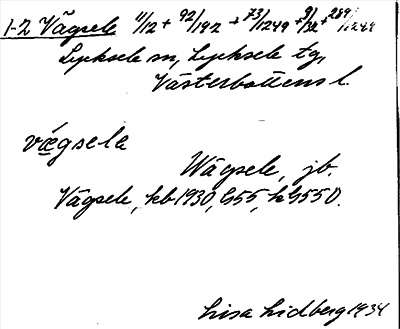 1-2 Vägsele 11/12 + 92/192 + 73/1249 + 9/32 + 259/1249
Lycksele sn, Lycksele tg,
Västerbottens l.
vægsela
Wägsele, jb.
Vägsele, kb 1930, G55, hG55 O.
Lisa Lidberg 1934